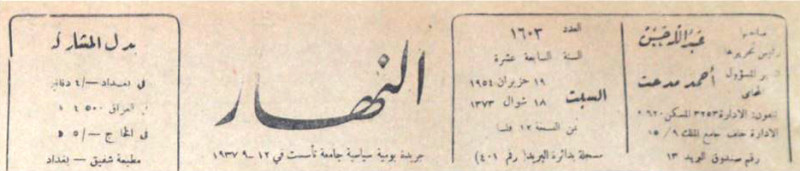 صاحبها
رئيس تحريرها
عبد الله حسن
المسؤول
أحمد مدحت
المحامي
تلفون: الادارة ٣٢٥٣ المسكن
الادارة خلف جامع الملك ٩/ ١٥
رقم صندوق البريد ١٣
العدد ١٦٠٣
السنة السابعة عشرة
السبت
١٩ حزيران ١٩٥٤
١٨ شوال ١٣٧٣
ثمن النسخة ١٢ فلسا
مسجلة بدائرة البريد( رقم ٤٠١)
النهار
جريدة يومية سياسية جامعة تأسست في ١٢ _ ٩ ١٩٣٧
بدل المشاركة
في بغداد —/٤ دنانير
العراق
في الخارج —/٥
مطبعة شفيق — بغداد